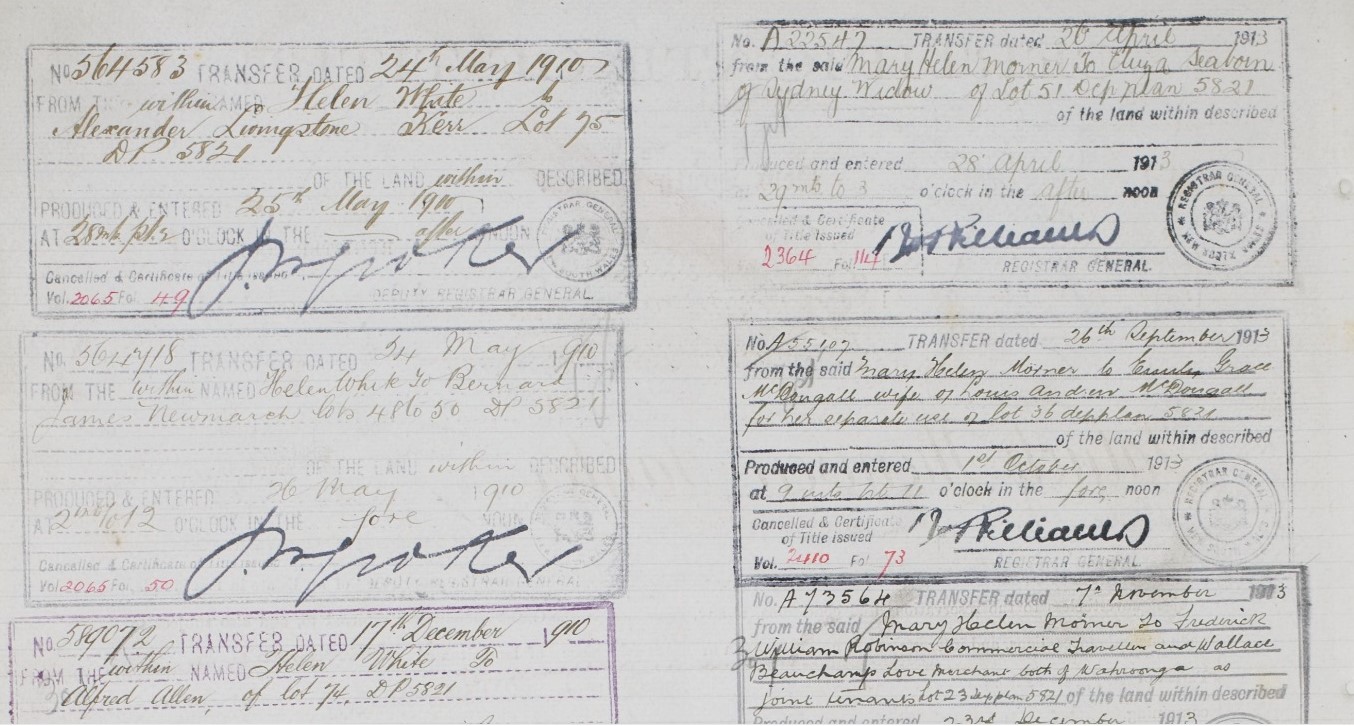 No. 564583 TRANSFER DATED 24th May 1910
FROM THE within NAMED Helen White to
Alexander Livingstone Kerr Lot 75
DP 5821
OF THE LAND within DESCRIBED
PRODUCED & ENTERED 25th May 1910
AT 28 mts pt 2 O'CLOCK IN THE after NOON
Cancelled & Certificate of Title issued
Vol. 2065 Fol. 49
DEPUTY REGISTRAR GENERAL.
REGISTRAR GENERAL
SOUTH WALES
No. 564718 TRANSFER DATED 24 May 1910
FROM THE within NAMED Helen White To Bernard
James Newmarch lots 48 to 50 DP 5821
OF THE LAND within DESCRIBED
PRODUCED & ENTERED 26 May 1910
AT to 12 O'CLOCK IN THE fore NOON
Cancelled & Certificate of Title issued
Vol. 2065 Fol. 50
DEPUTY REGISTRAR GENERAL
No. 589072 TRANSFER DATED 17th December 1910
FROM THE within NAMED Helen White To
Alfred Allen, of lot 74, DP 5821
No. A 22547 TRANSFER dated 26 April 1913
from the said Mary Helen Morner To Eliza Seaborn
of Sydney Widow of Lot 51 Dep plan 5821
of the land within described
Produced and entered 28 April 1913
at 27 mts to 3 o'clock in the after noon
Cancelled & Certificate
of Title Issued
2364 Fol. 114
W G H Williams
REGISTRAR GENERAL.
REGISTRAR GENERAL
No. A 55107 TRANSFER dated 26th September 1913
from the said Mary Helen Morner to Emily Grace
McDougall wife of Louis Andrew McDougall
for her separate use of lot 36 dep plan 5821
of the land within described
Produced and entered 1st October 1913
at 9 mts to 11 o'clock in the fore noon
Cancelled & Certificate
of Title issued
Vol. 2410 Fol 73
Williams
REGISTRAR GENERAL.
REGISTRAR GENERAL
No. A 73564 TRANSFER dated 7th November 1913
from the said Mary Helen Morner To Frederick
William Robinson Commercial Traveller and Wallace
Beauchamp Love Merchant both of Wahroonga as
joint tenants Lot 23 Dep plan 5821 of the land within described
Produced and entered 23rd December 1913